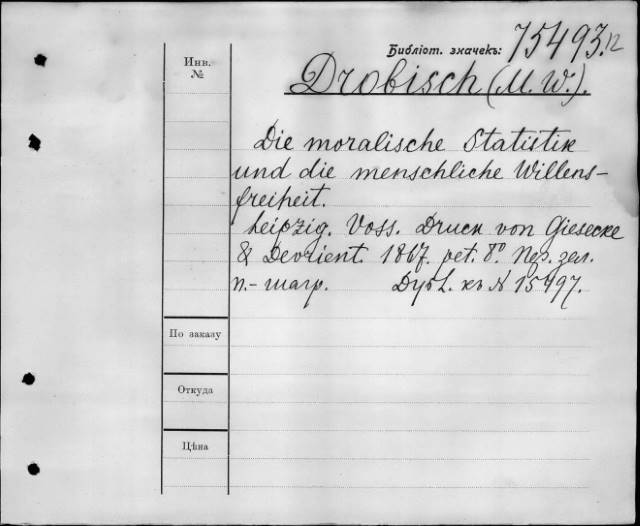 Библіот. значекъ: 75493.12
Инв. №
Drobisch (M. W.).
Die moralische Statistik
und die menschliche Willens-
freiheit.
Leipzig. Voss. Druck von Giesecke
& Devrient. 1867. pet. 8º. Пер. зел.
п.-шагр. Дубл. къ № 15497.
По заказу
Откуда
Цѣна